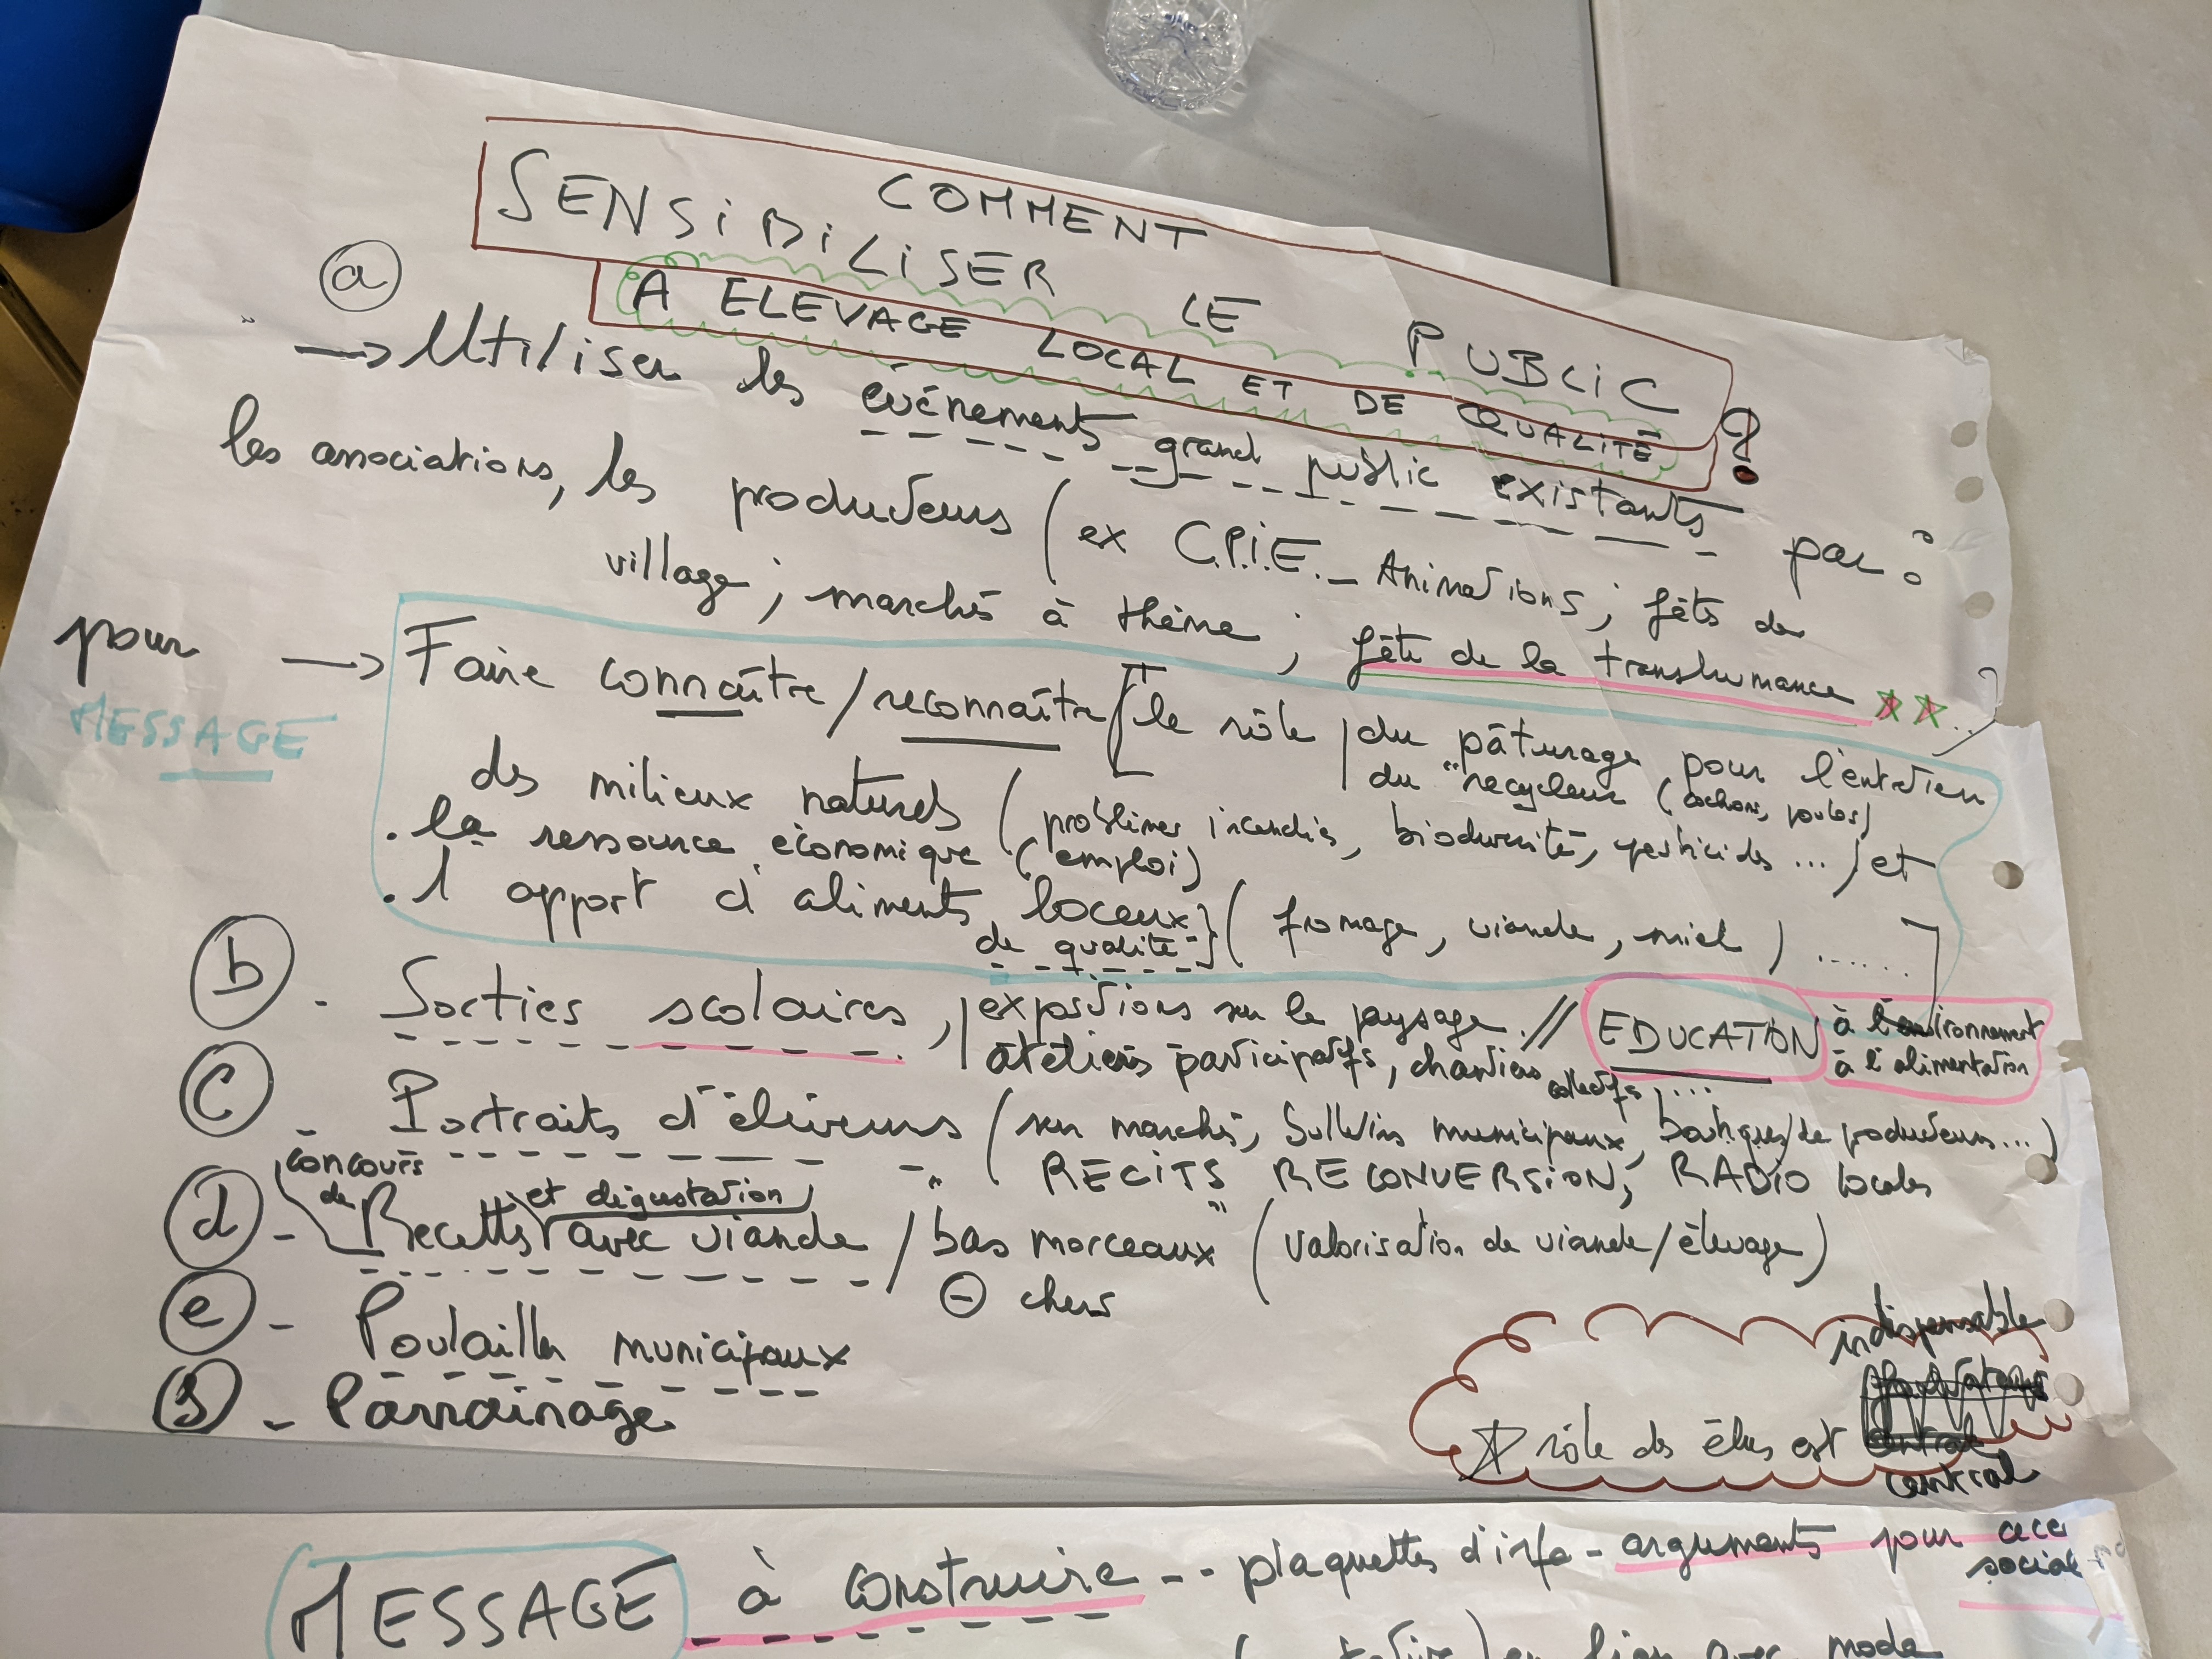 COMMENT
SENSIBILISER LE PUBLIC
A ELEVAGE LOCAL ET DE QUALITÉ ?
a
→ Utiliser les événements grand public existants par :
les associations, les producteurs (ex C.P.I.E. _ Animations ; fêtes de
village ; marchés à thème ; fête de la transhumance ..)
pour → Faire connaître / reconnaître [ le rôle / du pâturage pour l'entretien
MESSAGE
du "recycleur" (cochons, poules)
des milieux naturels (problèmes incendies, biodiversité, pesticides ...) et
. la ressource économique (emploi)
. l'apport d'aliments locaux (fromage, viande, miel) ...... ]
de qualité
b - Sorties scolaires, / expositions sur le paysage. // EDUCATION à l'environnement
ateliers participatifs, chantiers collectifs, .... à l'alimentation
c - Portraits d'éleveurs (sur marchés, bulletins municipaux, boutiques de producteurs ...)
" RECITS RECONVERSION, RADIO locales
concours de
et dégustation
d - Recettes avec viande / bas morceaux" (valorisation de viande / élevage)
⊖ chers
e - Poulailler municipaux
- Parrainage
indispensable
rôle des élus est
central
MESSAGE à construire -- plaquettes d'info - arguments pour
social
en lien avec mode